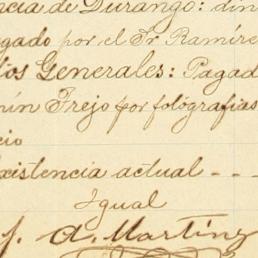 ncia de Durango: din
gado por el Sr Ramíre
tos Generales: Pagad
nín Trejo por fotografias
cio
xistencia actual - - -
Igual
f. A. Martínz